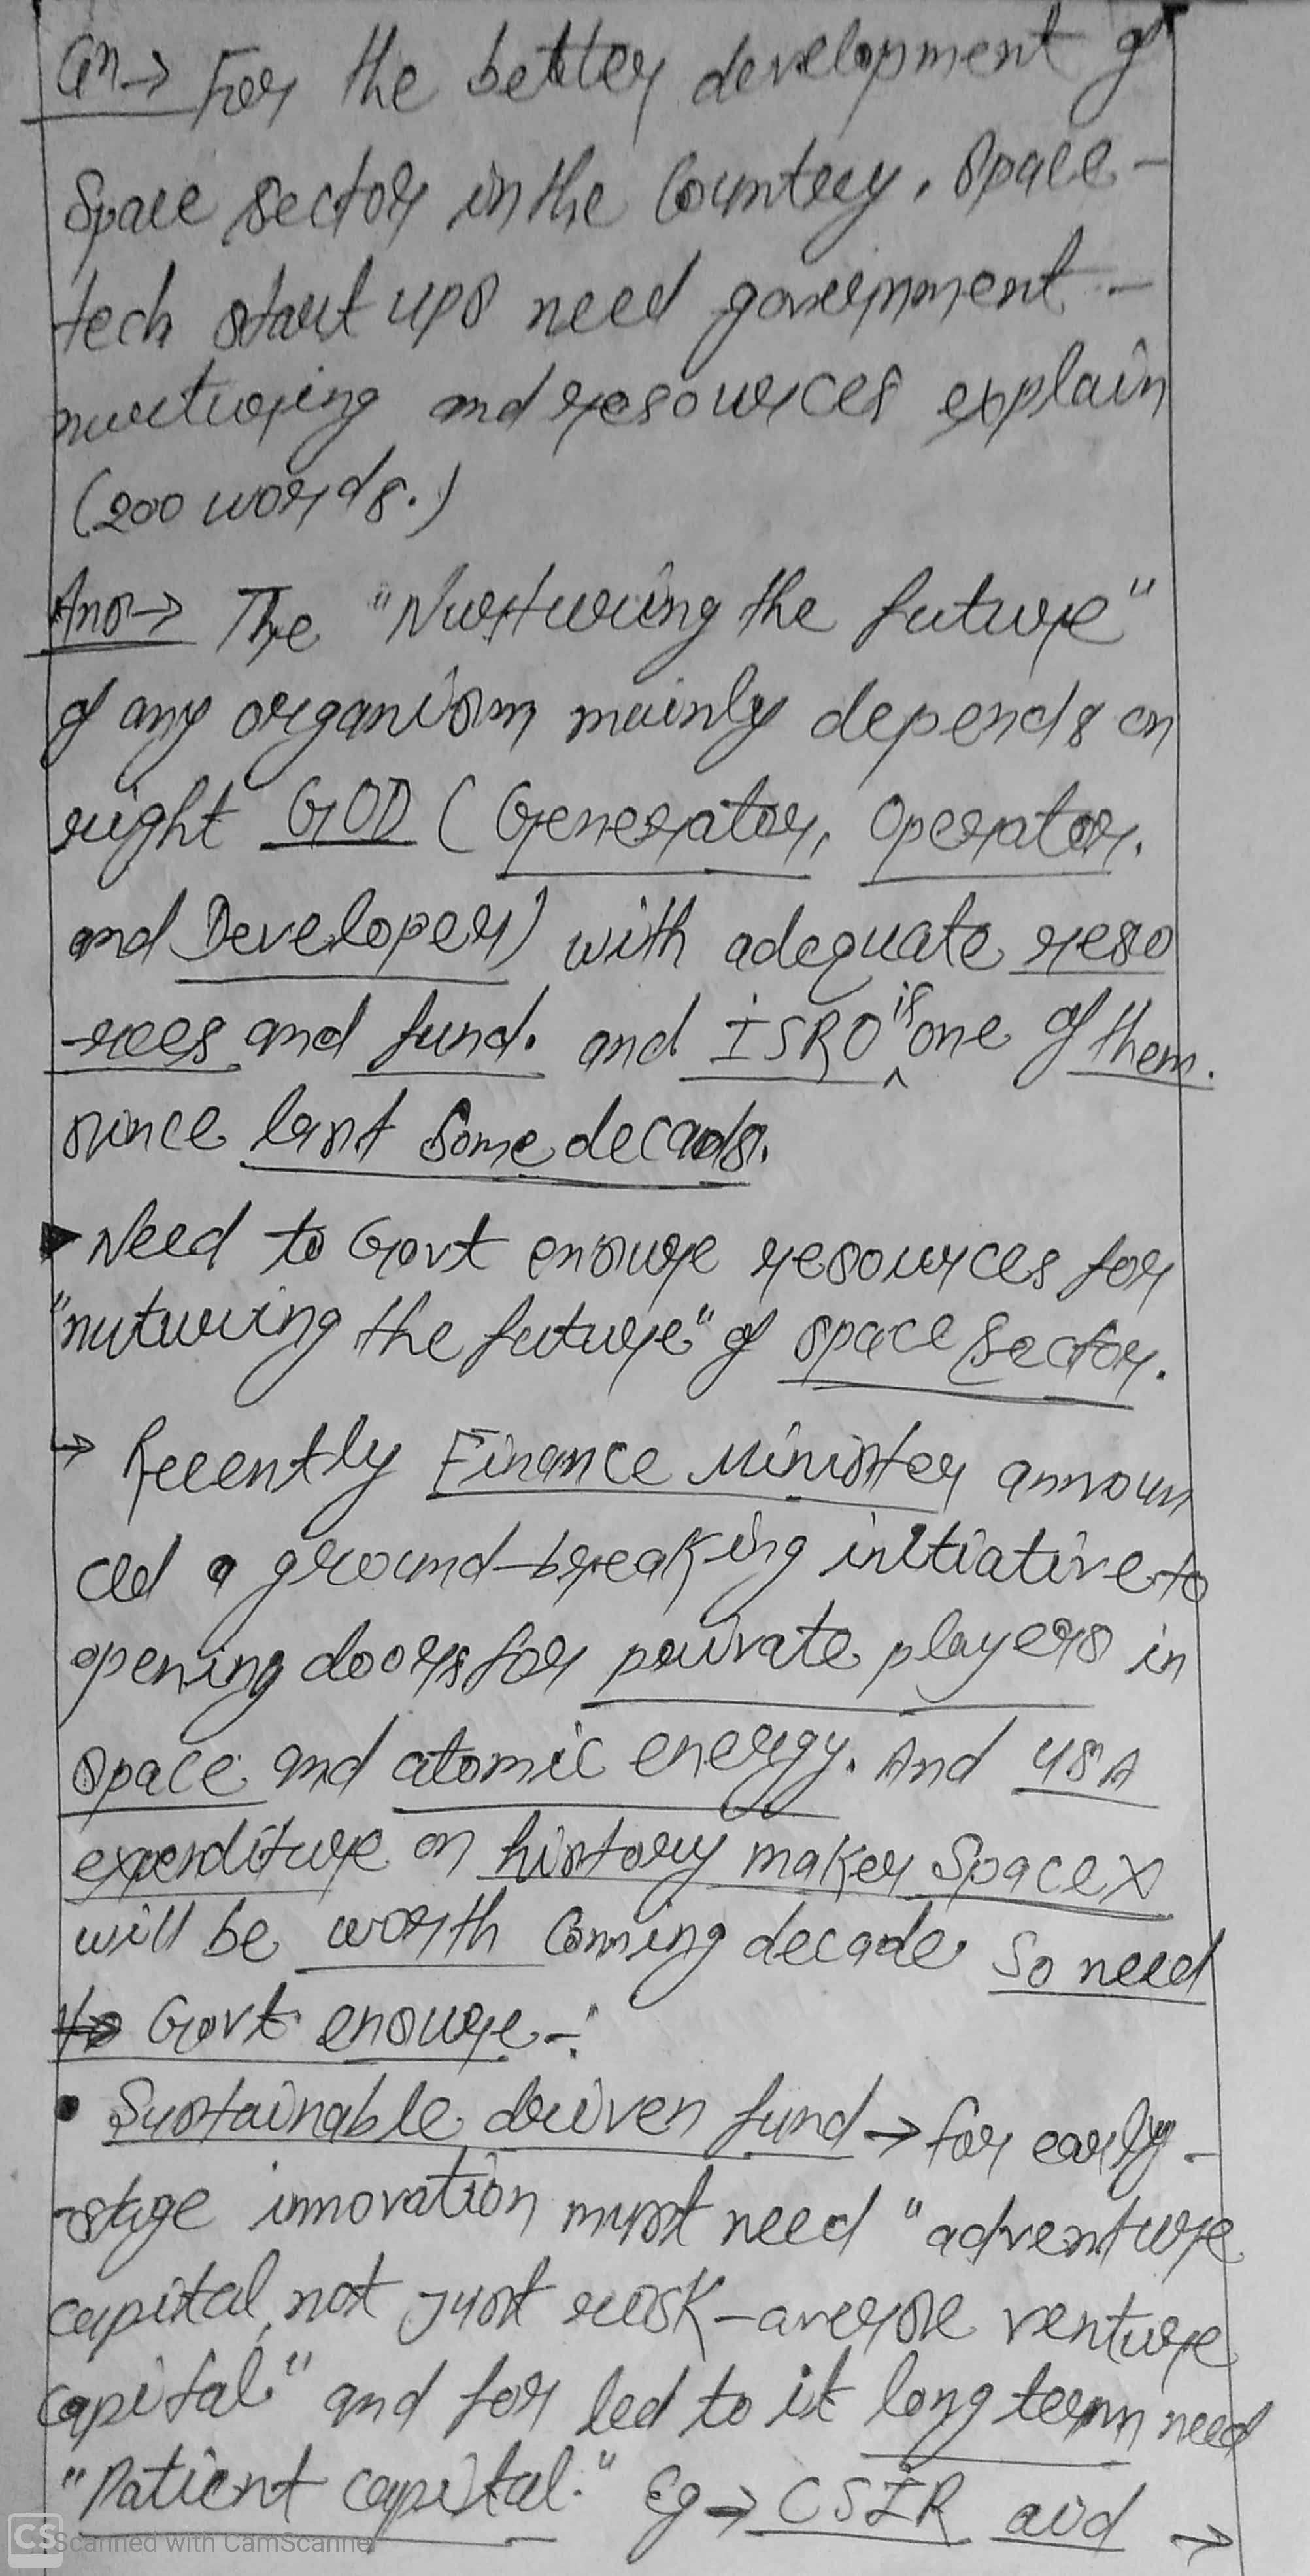 Qn→ For the better development of
Space sector in the Country, Space-
tech start ups need government-
nurturing and resources explain
(200 words.)
Ans→ The "Nurturing the future"
of any organism mainly depends on
right GOD (Generator, Operator,
and Developer) with adequate reso
-rces and fund. and ISRO is one of them.
since last some decads.
▸ Need to Govt ensure resources for
"nuturing the future" of space sector.
→ Recently Finance Minister announ
ced a ground-breaking initiative to
opening doors for private players in
space and atomic energy. And USA
expenditure on history maker SpaceX
will be worth Coming decade. So need
to Govt ensure-:
• Sustainable driven fund → for early-
-stage innovation must need "adventure
capital, not just risk-averse venture
capital" and for led to it long term need
"Patient capital." Eg→ CSIR aid →
CS Scanned with CamScanner